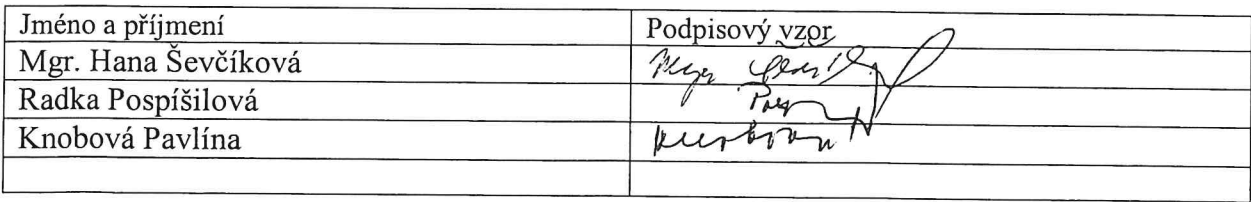 Jméno a příjmení Podpisový vzor
Mgr. Hana Ševčíková Mgr.
Radka Pospíšilová
Knobová Pavlína Knobová